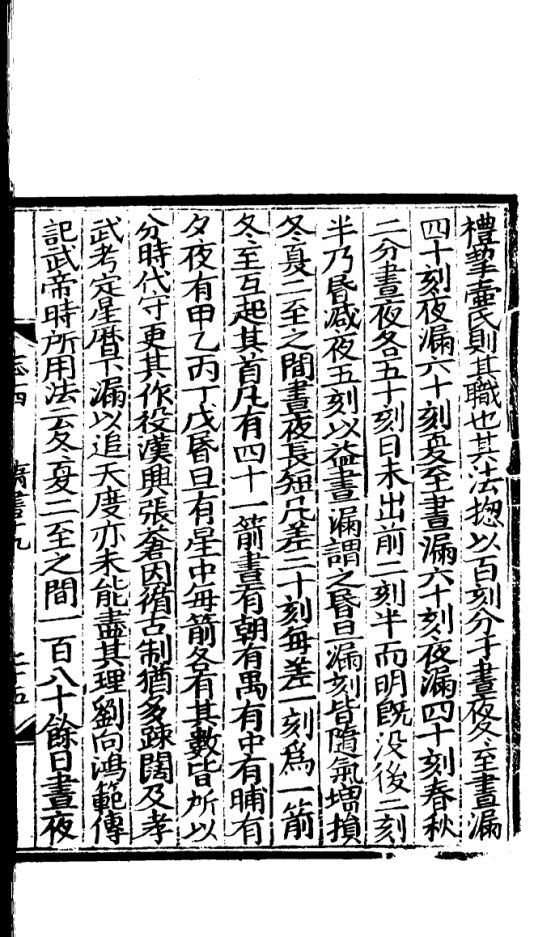 禮挈壷氏則其職也其法揔以百刻分于晝夜冬至晝漏
四十刻夜漏六十刻夏至晝漏六十刻夜漏四十刻春秋
二分晝夜各五十刻日未出前二刻半而明旣没後二刻
半乃昏减夜五刻以益晝漏謂之昏旦漏刻皆隨氣増損
冬夏二至之間晝夜長短凡差二十刻每差一刻爲一箭
冬至互起其首凡有四十一箭晝有朝有禺有中有晡有
夕夜有甲乙丙丁戊昏旦有星中每箭各有其數皆所以
分時代守更其作役漢興張蒼因循古制猶多疎闊及孝
武考定星曆下漏以追天度亦未能盡其理劉向鴻範傳
記武帝時所用法云冬夏二至之間一百八十餘日晝夜